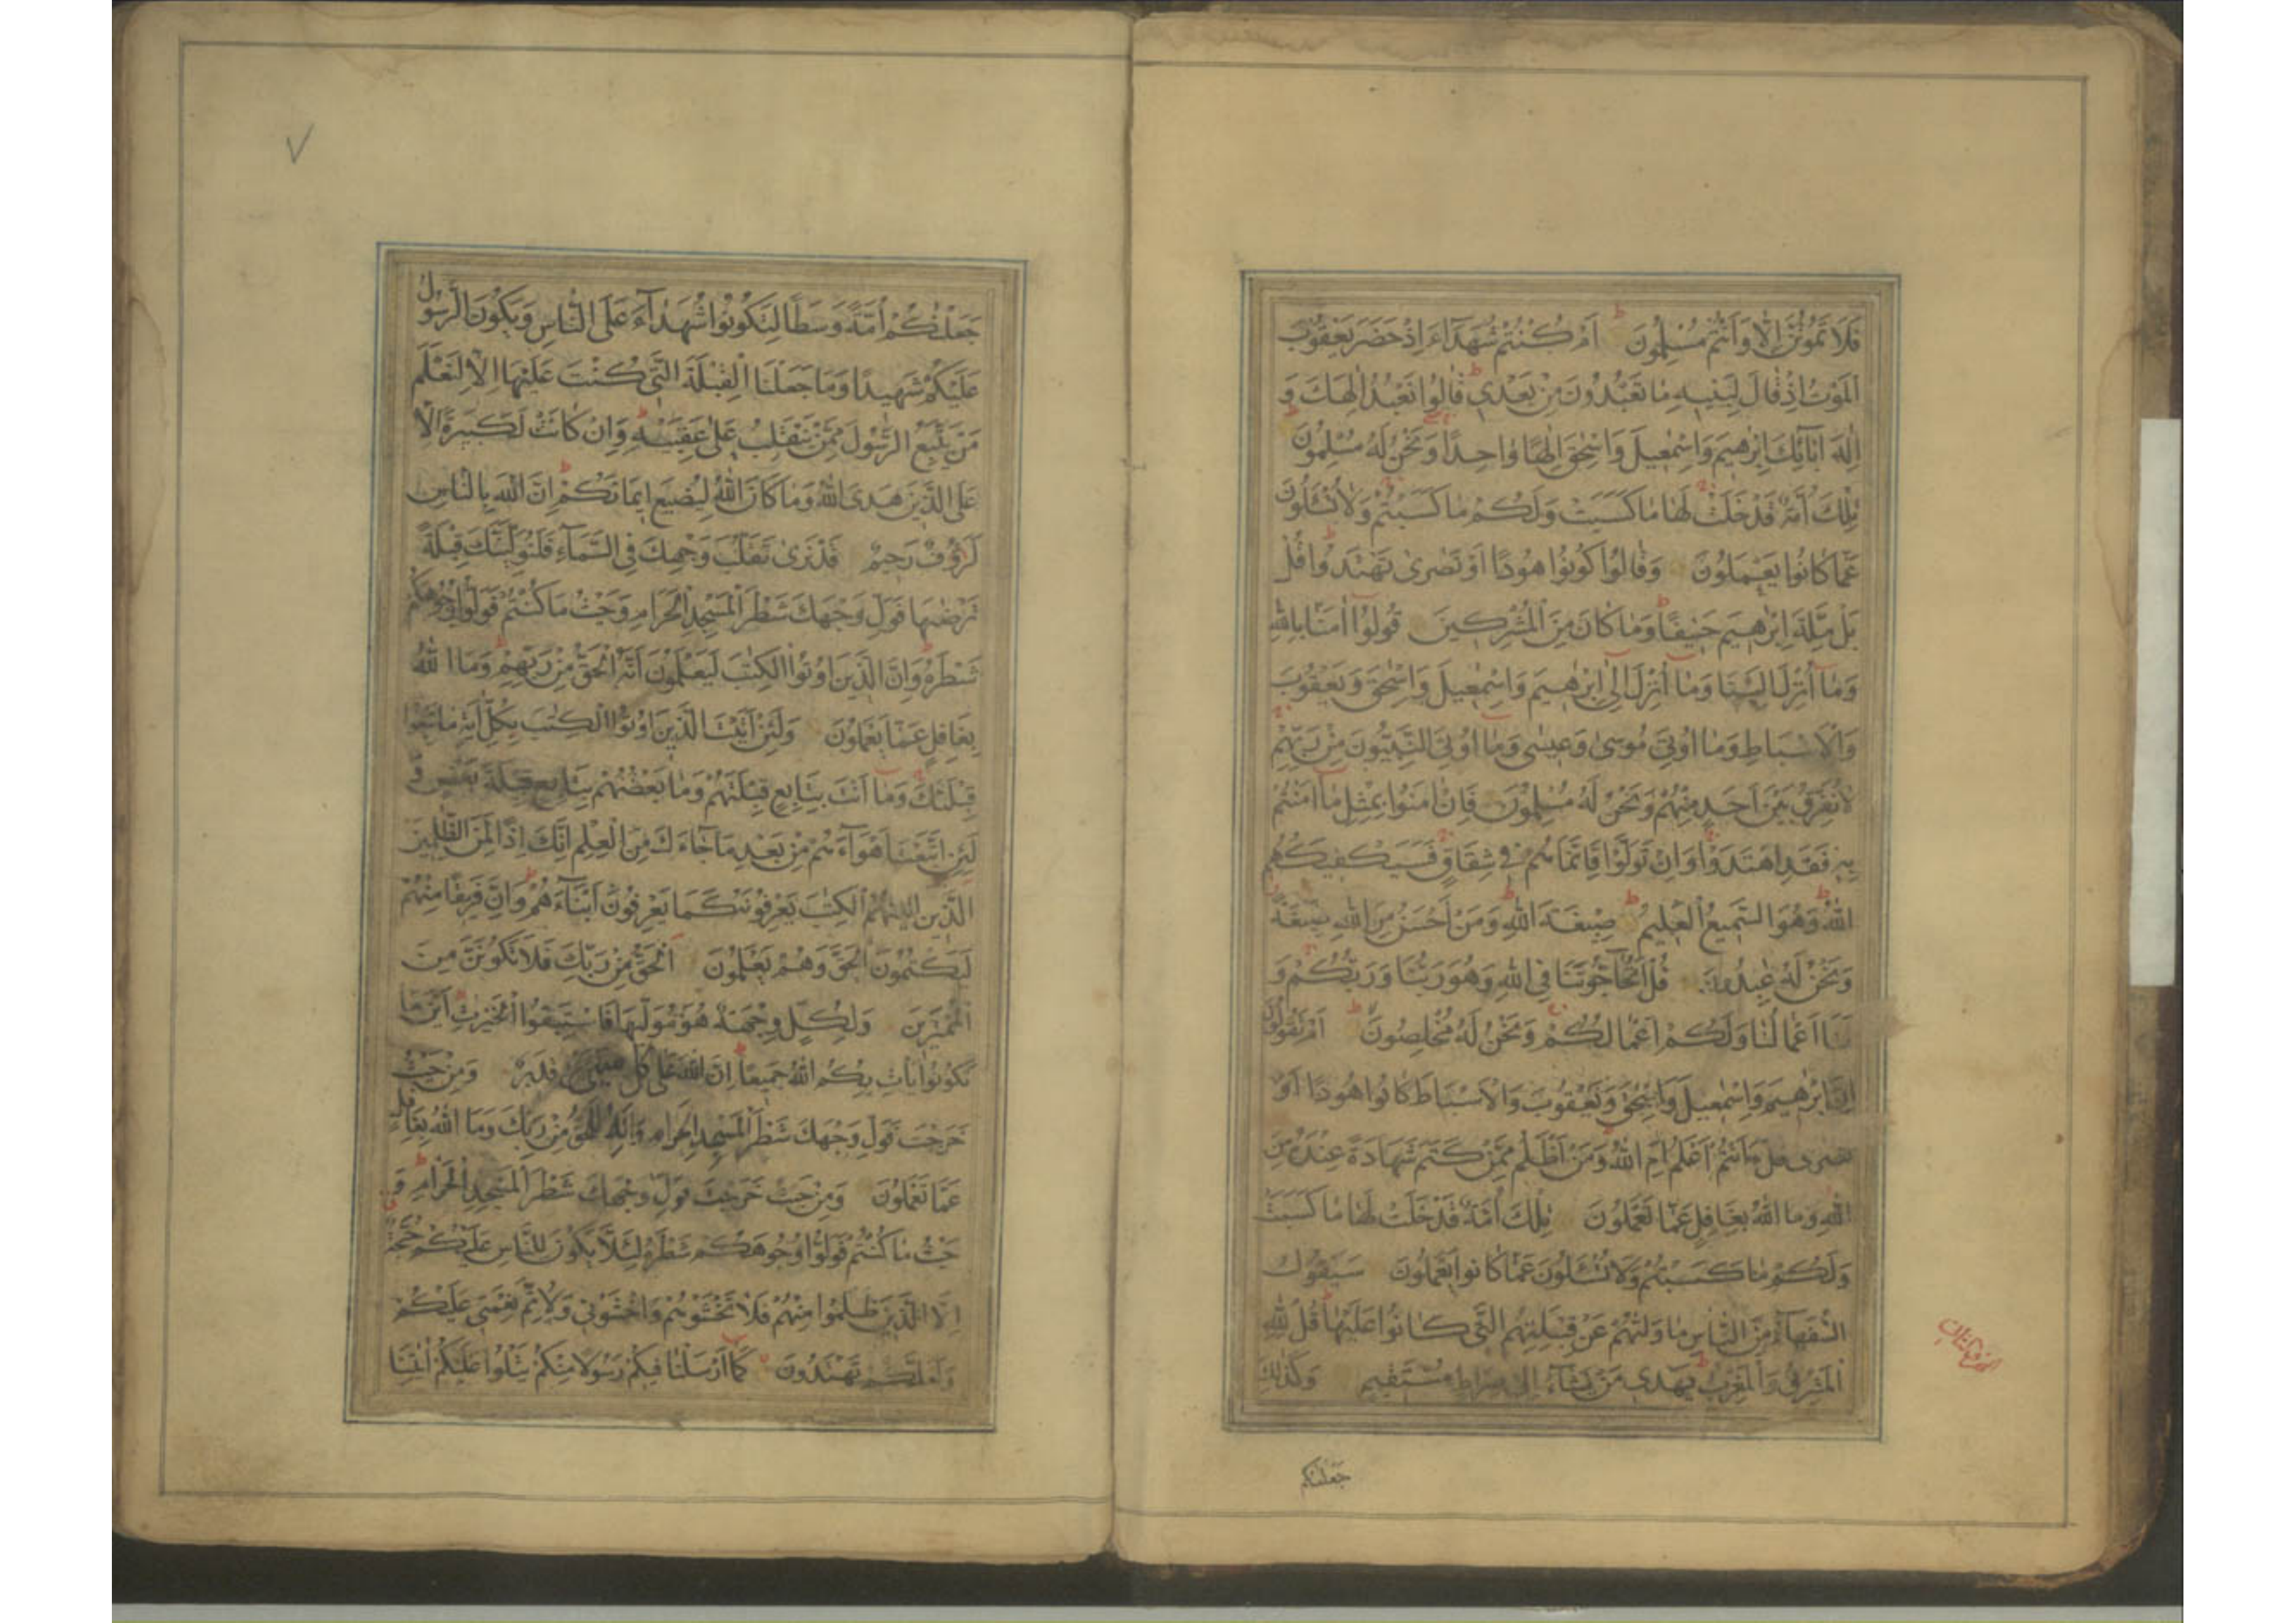 فَلَا تَمُوتُنَّ إِلَّا وَأَنْتُمْ مُسْلِمُونَ أَمْ كُنْتُمْ شُهَدَاءَ إِذْ حَضَرَ يَعْقُوبَ
الْمَوْتُ إِذْ قَالَ لِبَنِيهِ مَا تَعْبُدُونَ مِنْ بَعْدِي قَالُوا نَعْبُدُ إِلٰهَكَ وَ
إِلٰهَ اٰبَائِكَ إِبْرٰهِيمَ وَإِسْمٰعِيلَ وَإِسْحٰقَ إِلٰهًا وَاحِدًا وَنَحْنُ لَهُ مُسْلِمُونَ
تِلْكَ أُمَّةٌ قَدْ خَلَتْ لَهَا مَا كَسَبَتْ وَلَكُمْ مَا كَسَبْتُمْ وَلَا تُسْئَلُونَ
عَمَّا كَانُوا يَعْمَلُونَ وَقَالُوا كُونُوا هُودًا أَوْ نَصٰرٰى تَهْتَدُوا قُلْ
بَلْ مِلَّةَ إِبْرٰهِيمَ حَنِيفًا وَمَا كَانَ مِنَ الْمُشْرِكِينَ قُولُوا اٰمَنَّا بِاللّٰهِ
وَمَا أُنْزِلَ إِلَيْنَا وَمَا أُنْزِلَ إِلٰى إِبْرٰهِيمَ وَإِسْمٰعِيلَ وَإِسْحٰقَ وَيَعْقُوبَ
وَالْأَسْبَاطِ وَمَا أُوتِيَ مُوسٰى وَعِيسٰى وَمَا أُوتِيَ النَّبِيُّونَ مِنْ رَبِّهِمْ
لَا نُفَرِّقُ بَيْنَ أَحَدٍ مِنْهُمْ وَنَحْنُ لَهُ مُسْلِمُونَ فَإِنْ اٰمَنُوا بِمِثْلِ مَا اٰمَنْتُمْ
بِهِ فَقَدِ اهْتَدَوْا وَإِنْ تَوَلَّوْا فَإِنَّمَا هُمْ فِي شِقَاقٍ فَسَيَكْفِيكَهُمُ
اللّٰهُ وَهُوَ السَّمِيعُ الْعَلِيمُ صِبْغَةَ اللّٰهِ وَمَنْ أَحْسَنُ مِنَ اللّٰهِ صِبْغَةً
وَنَحْنُ لَهُ عٰبِدُونَ قُلْ أَتُحَاجُّونَنَا فِي اللّٰهِ وَهُوَ رَبُّنَا وَرَبُّكُمْ وَ
لَنَا أَعْمَالُنَا وَلَكُمْ أَعْمَالُكُمْ وَنَحْنُ لَهُ مُخْلِصُونَ أَمْ تَقُولُونَ
إِنَّ إِبْرٰهِيمَ وَإِسْمٰعِيلَ وَإِسْحٰقَ وَيَعْقُوبَ وَالْأَسْبَاطَ كَانُوا هُودًا أَوْ
نَصٰرٰى قُلْ ءَأَنْتُمْ أَعْلَمُ أَمِ اللّٰهُ وَمَنْ أَظْلَمُ مِمَّنْ كَتَمَ شَهَادَةً عِنْدَهُ مِنَ
اللّٰهِ وَمَا اللّٰهُ بِغَافِلٍ عَمَّا تَعْمَلُونَ تِلْكَ أُمَّةٌ قَدْ خَلَتْ لَهَا مَا كَسَبَتْ
وَلَكُمْ مَا كَسَبْتُمْ وَلَا تُسْئَلُونَ عَمَّا كَانُوا يَعْمَلُونَ سَيَقُولُ
السُّفَهَاءُ مِنَ النَّاسِ مَا وَلّٰهُمْ عَنْ قِبْلَتِهِمُ الَّتِي كَانُوا عَلَيْهَا قُلْ لِلّٰهِ
الْمَشْرِقُ وَالْمَغْرِبُ يَهْدِي مَنْ يَشَاءُ إِلٰى صِرَاطٍ مُسْتَقِيمٍ وَكَذٰلِكَ
جعلنكم
جَعَلْنٰكُمْ أُمَّةً وَسَطًا لِتَكُونُوا شُهَدَاءَ عَلَى النَّاسِ وَيَكُونَ الرَّسُولُ
عَلَيْكُمْ شَهِيدًا وَمَا جَعَلْنَا الْقِبْلَةَ الَّتِي كُنْتَ عَلَيْهَا إِلَّا لِنَعْلَمَ
مَنْ يَتَّبِعُ الرَّسُولَ مِمَّنْ يَنْقَلِبُ عَلٰى عَقِبَيْهِ وَإِنْ كَانَتْ لَكَبِيرَةً إِلَّا
عَلَى الَّذِينَ هَدَى اللّٰهُ وَمَا كَانَ اللّٰهُ لِيُضِيعَ إِيمَانَكُمْ إِنَّ اللّٰهَ بِالنَّاسِ
لَرَؤُفٌ رَحِيمٌ قَدْ نَرٰى تَقَلُّبَ وَجْهِكَ فِي السَّمَاءِ فَلَنُوَلِّيَنَّكَ قِبْلَةً
تَرْضٰيهَا فَوَلِّ وَجْهَكَ شَطْرَ الْمَسْجِدِ الْحَرَامِ وَحَيْثُ مَا كُنْتُمْ فَوَلُّوا وُجُوهَكُمْ
شَطْرَهُ وَإِنَّ الَّذِينَ أُوتُوا الْكِتٰبَ لَيَعْلَمُونَ أَنَّهُ الْحَقُّ مِنْ رَبِّهِمْ وَمَا اللّٰهُ
بِغَافِلٍ عَمَّا يَعْمَلُونَ وَلَئِنْ أَتَيْتَ الَّذِينَ أُوتُوا الْكِتٰبَ بِكُلِّ اٰيَةٍ مَا تَبِعُوا
قِبْلَتَكَ وَمَا أَنْتَ بِتَابِعٍ قِبْلَتَهُمْ وَمَا بَعْضُهُمْ بِتَابِعٍ قِبْلَةَ بَعْضٍ وَ
لَئِنِ اتَّبَعْتَ أَهْوَاءَهُمْ مِنْ بَعْدِ مَا جَاءَكَ مِنَ الْعِلْمِ إِنَّكَ إِذًا لَمِنَ الظّٰلِمِينَ
الَّذِينَ اٰتَيْنٰهُمُ الْكِتٰبَ يَعْرِفُونَهُ كَمَا يَعْرِفُونَ أَبْنَاءَهُمْ وَإِنَّ فَرِيقًا مِنْهُمْ
لَيَكْتُمُونَ الْحَقَّ وَهُمْ يَعْلَمُونَ الْحَقُّ مِنْ رَبِّكَ فَلَا تَكُونَنَّ مِنَ
الْمُمْتَرِينَ وَلِكُلٍّ وِجْهَةٌ هُوَ مُوَلِّيهَا فَاسْتَبِقُوا الْخَيْرٰتِ أَيْنَ مَا
تَكُونُوا يَأْتِ بِكُمُ اللّٰهُ جَمِيعًا إِنَّ اللّٰهَ عَلٰى كُلِّ شَيْءٍ قَدِيرٌ وَمِنْ حَيْثُ
خَرَجْتَ فَوَلِّ وَجْهَكَ شَطْرَ الْمَسْجِدِ الْحَرَامِ وَإِنَّهُ لَلْحَقُّ مِنْ رَبِّكَ وَمَا اللّٰهُ بِغَافِلٍ
عَمَّا تَعْمَلُونَ وَمِنْ حَيْثُ خَرَجْتَ فَوَلِّ وَجْهَكَ شَطْرَ الْمَسْجِدِ الْحَرَامِ وَ
حَيْثُ مَا كُنْتُمْ فَوَلُّوا وُجُوهَكُمْ شَطْرَهُ لِئَلَّا يَكُونَ لِلنَّاسِ عَلَيْكُمْ حُجَّةٌ
إِلَّا الَّذِينَ ظَلَمُوا مِنْهُمْ فَلَا تَخْشَوْهُمْ وَاخْشَوْنِي وَلِأُتِمَّ نِعْمَتِي عَلَيْكُمْ
وَلَعَلَّكُمْ تَهْتَدُونَ كَمَا أَرْسَلْنَا فِيكُمْ رَسُولًا مِنْكُمْ يَتْلُوا عَلَيْكُمْ اٰيٰتِنَا